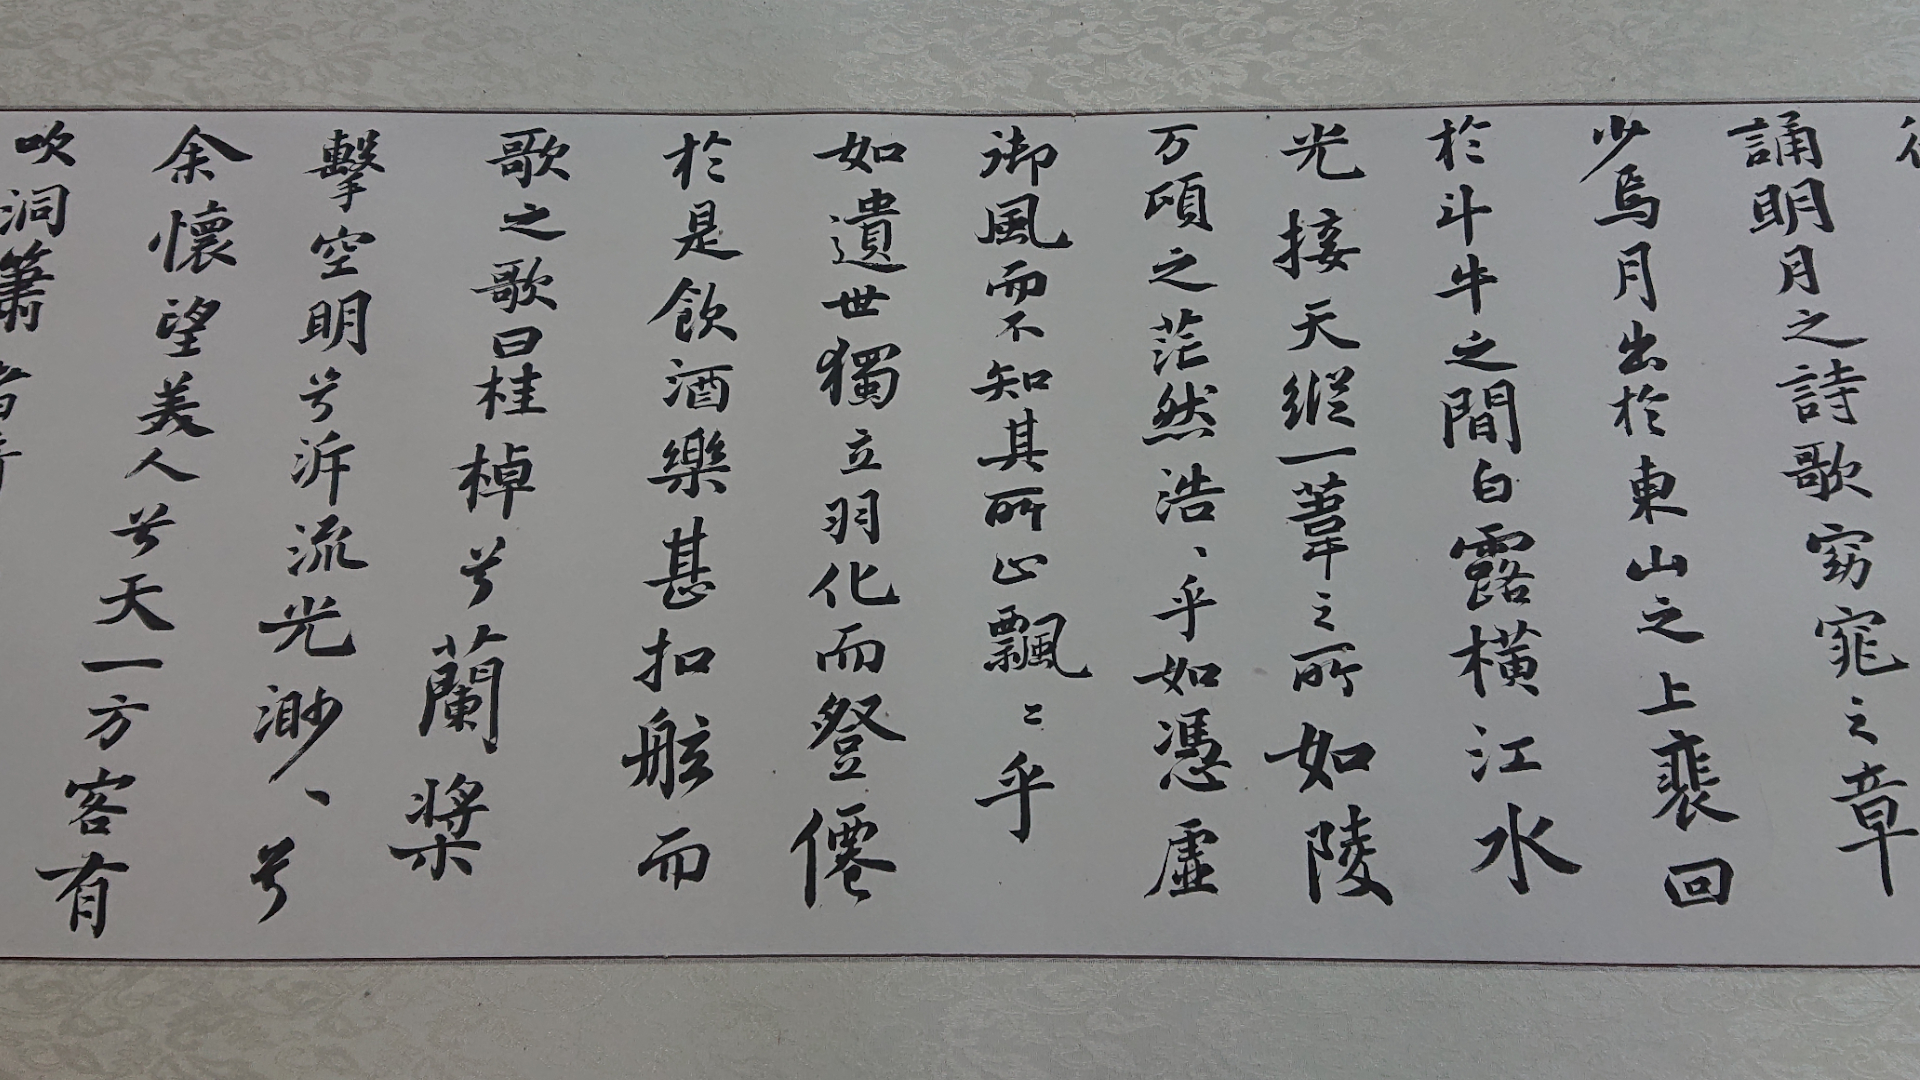 誦明月之詩歌窈窕之章
少焉月出於東山之上裴回
於斗牛之間白露橫江水
光接天縱一葦之所如陵
万頃之茫然浩、乎如憑虛
御風而不知其所止飄〻乎
如遺世獨立羽化而登僊
於是飲酒樂甚扣舷而
歌之歌曰桂棹兮蘭槳
擊空明兮泝流光渺、兮
余懷望美人兮天一方客有
吹洞簫者